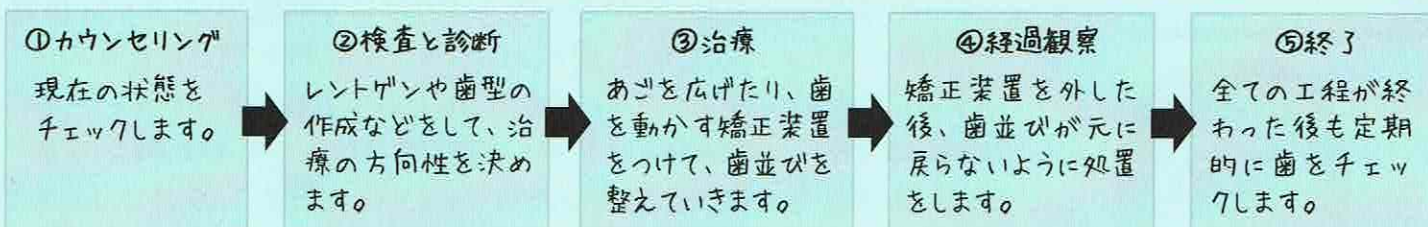 ①カウンセリング
現在の状態を
チェックします。
②検査と診断
レントゲンや歯型の
作成などをして、治
療の方向性を決め
ます。
③治療
あごを広げたり、歯
を動かす矯正装置
をつけて、歯並びを
整えていきます。
④経過観察
矯正装置を外した
後、歯並びが元に
戻らないように処置
をします。
⑤終了
全ての工程が終
わった後も定期
的に歯をチェッ
クします。